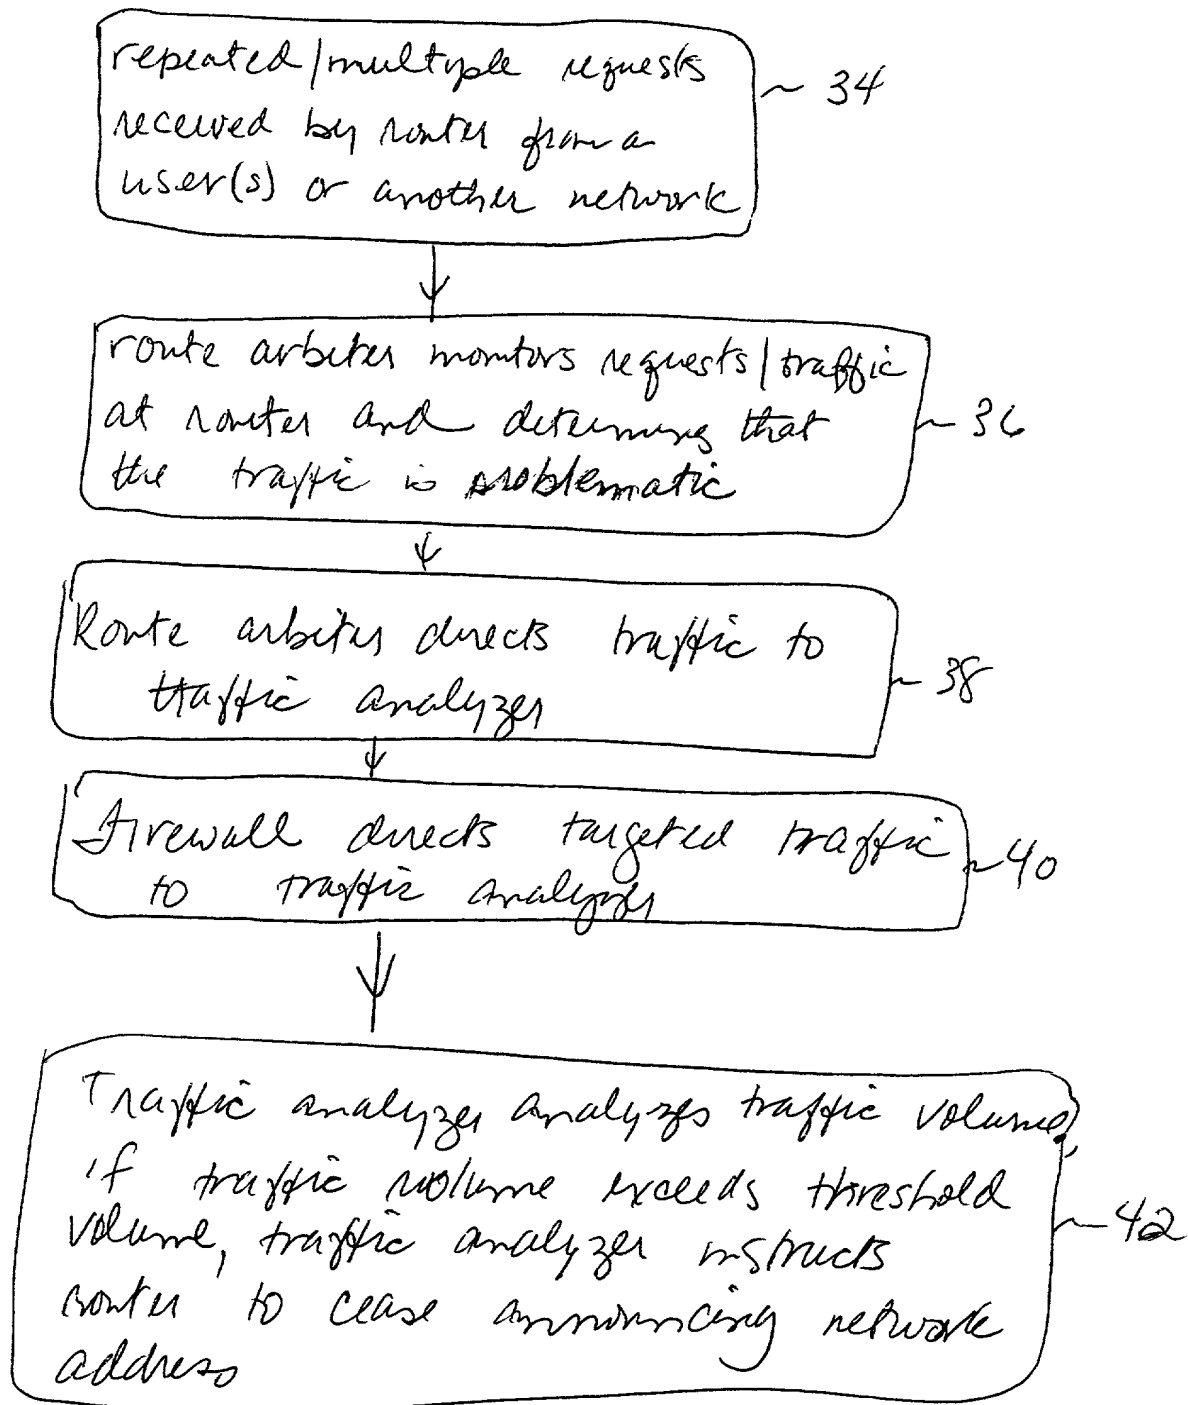 repeated/multiple requests
received by router from a
user(s) or another network
~ 34
route arbiter monitors requests/traffic
at router and determines that
the traffic is problematic
~ 36
Route arbiter directs traffic to
traffic analyzer
~ 38
Firewall directs targeted traffic
to traffic analyzer
~ 40
Traffic analyzer analyzes traffic volume,
if traffic volume exceeds threshold
volume, traffic analyzer instructs
router to cease announcing network
address
~ 42